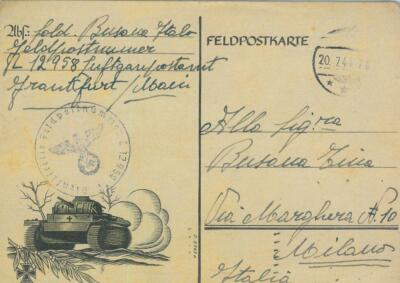 Abs.: Sold. Busana Italo
Feldpostnummer
L 12958 Luftgaupostamt
Frankfurt/Main
FELDPOSTKARTE
20.7.44
Alla Sig.ra
Busana Tina
Via Marghera N. 10
Milano
Italia